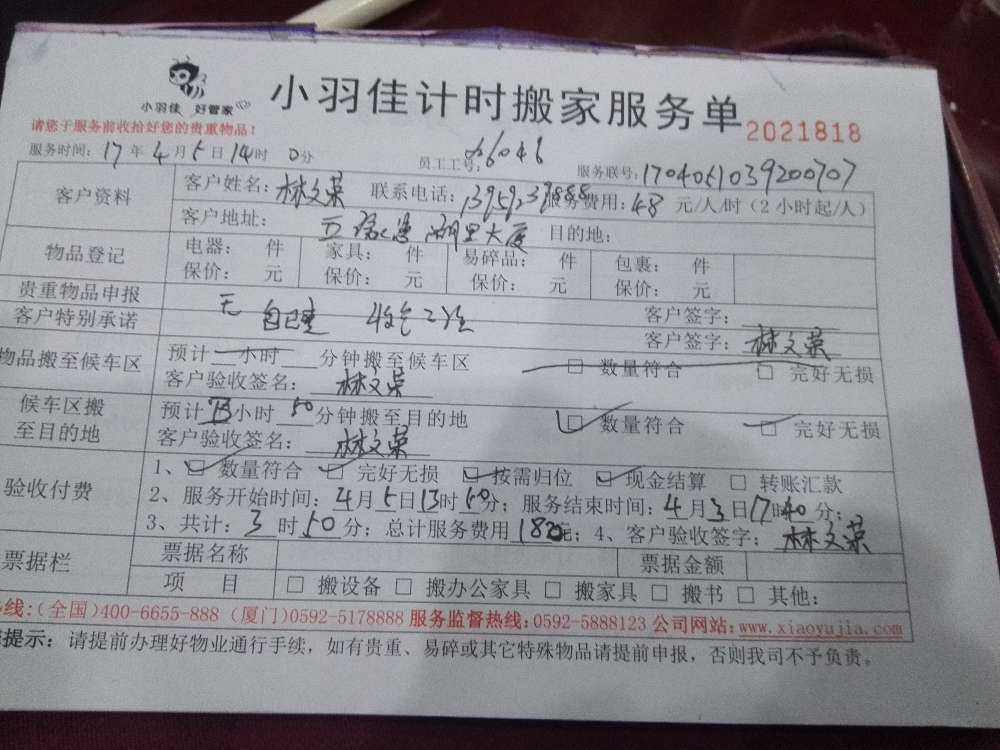 小羽佳 好管家
小羽佳计时搬家服务单
2021818
请您于服务前收拾好您的贵重物品！
服务时间：17年4月5日14时0分 员工工号： 服务联号：1704051039200707
客户资料 客户姓名：林文荣 联系电话： 服务费用：48元/人/时（2小时起/人）
客户地址： 湖里大厦 目的地：
物品登记 电器： 件 家具： 件 易碎品： 件 包裹： 件
保价： 元 保价： 元 保价： 元 保价： 元
贵重物品申报 无 客户签字：
客户特别承诺 自己 客户签字：林文荣
物品搬至候车区 预计 小时 分钟搬至候车区 □ 数量符合 □ 完好无损
客户验收签名：林文荣
候车区搬至目的地 预计 小时50分钟搬至目的地 □ 数量符合 □ 完好无损
客户验收签名：林文荣
验收付费 1、□ 数量符合 □ 完好无损 □ 按需归位 □ 现金结算 □ 转账汇款
2、服务开始时间：4月5日13时50分；服务结束时间：4月3日17时40分；
3、共计：3时50分；总计服务费用 元；4、客户验收签字：林文荣
票据栏 票据名称 票据金额
项 目 □ 搬设备 □ 搬办公家具 □ 搬家具 □ 搬书 □ 其他：
线：（全国）400-6655-888（厦门）0592-5178888 服务监督热线：0592-5888123 公司网站：www.xiaoyujia.com
提示：请提前办理好物业通行手续，如有贵重、易碎或其它特殊物品请提前申报，否则我司不予负责。